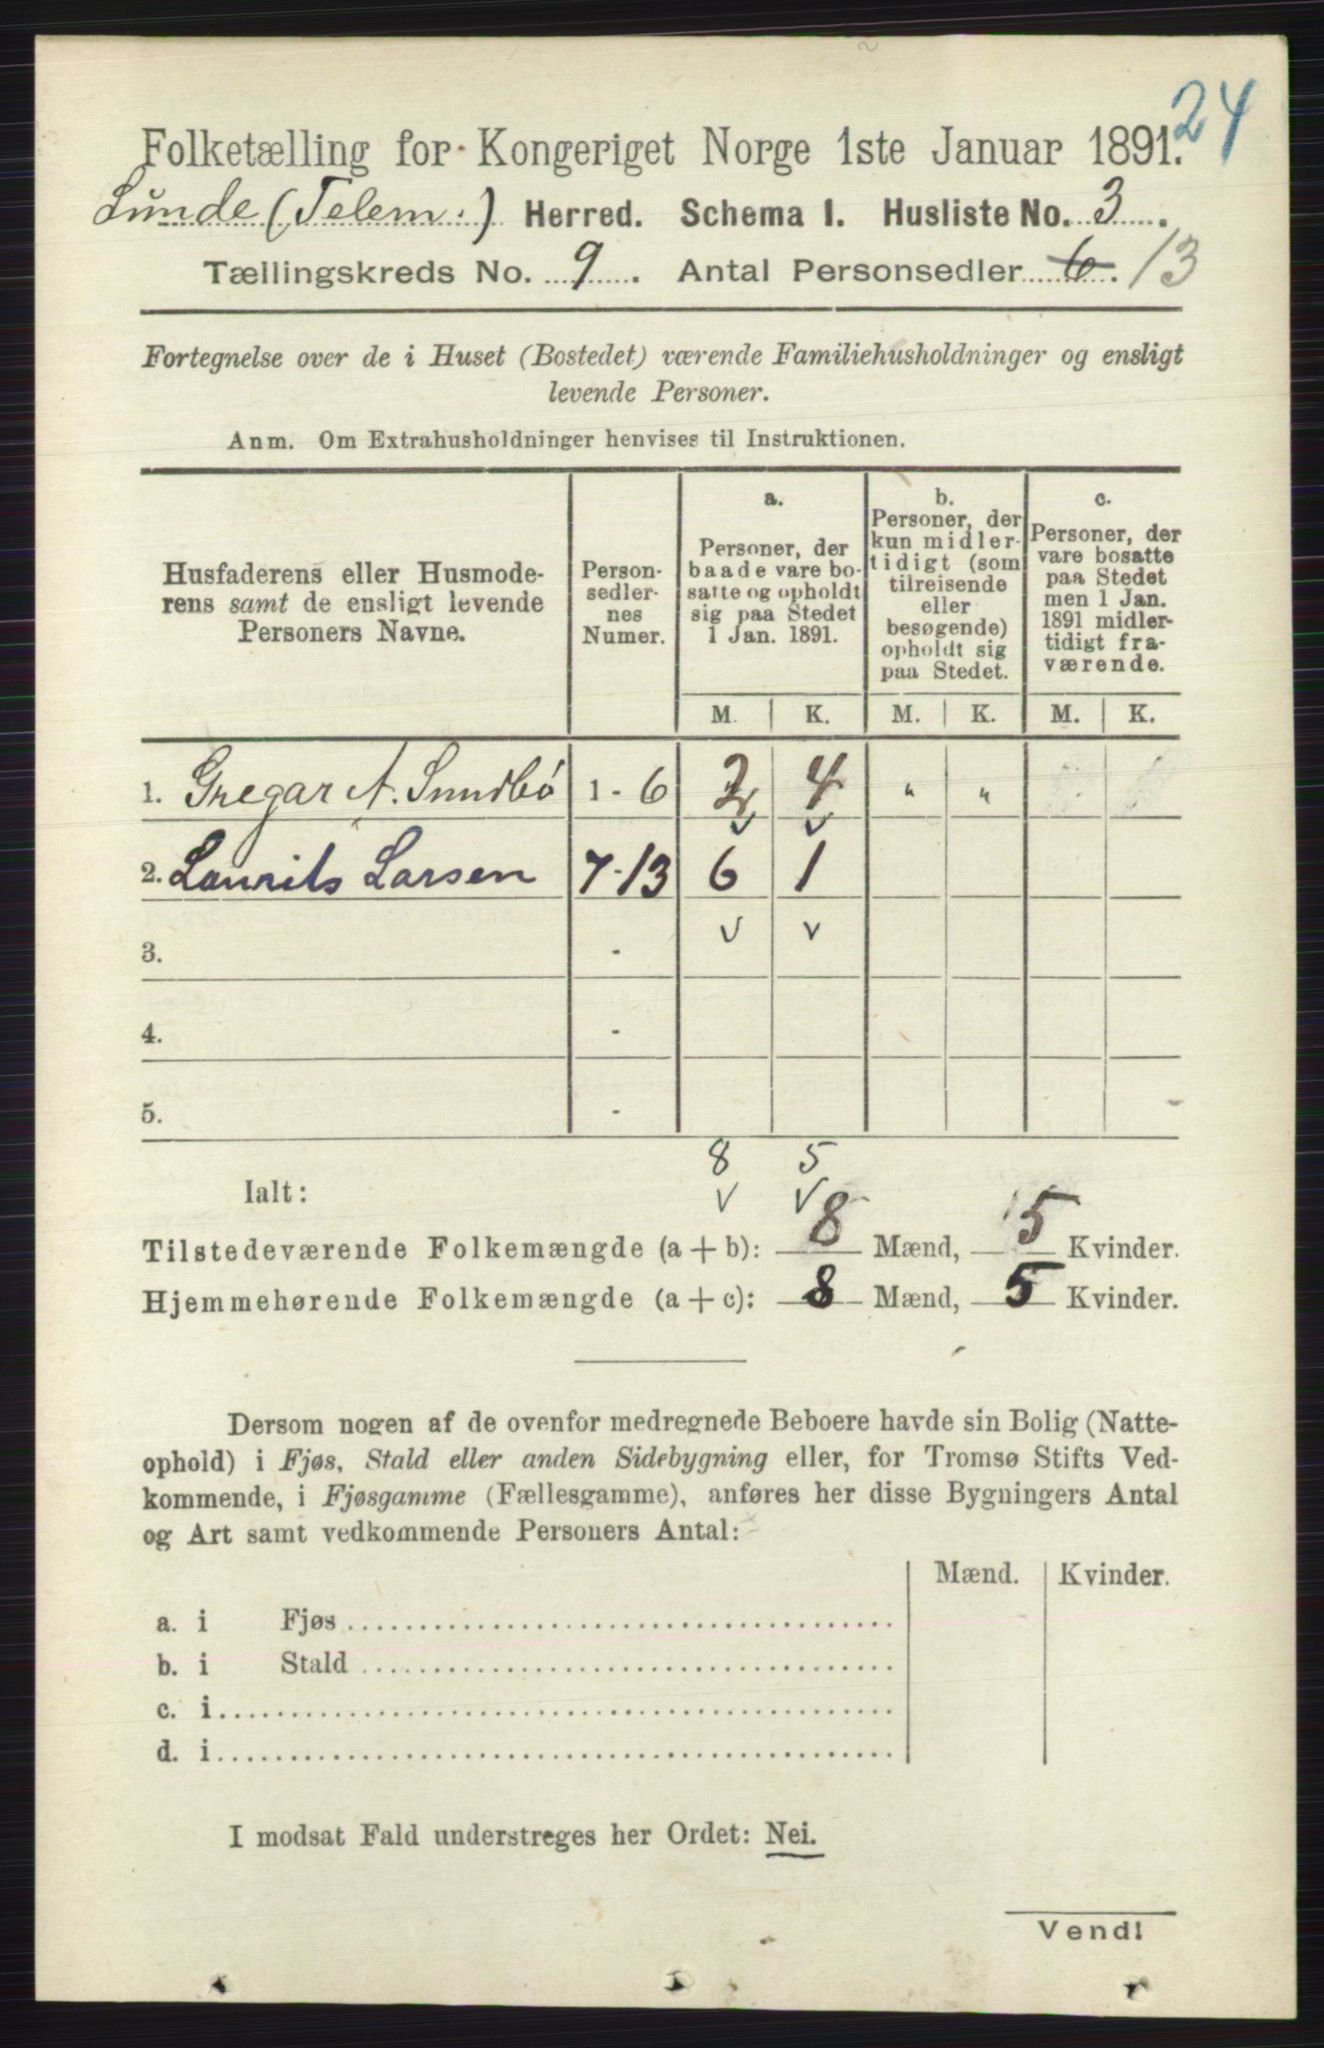 24
Folketælling for Kongeriget Norge 1ste Januar 1891.
Lunde (Telem.) Herred. Schema I. Husliste No. 3.
Tællingskreds No. 9. Antal Personsedler 6. 13
Fortegnelse over de i Huset (Bostedet) værende Familiehusholdninger og ensligt
levende Personer.
Anm. Om Extrahusholdninger henvises til Instruktionen.
Husfaderens eller Husmode-
rens samt de ensligt levende
Personers Navne.
Person-
sedler-
nes
Numer.
a.
Personer, der
baade vare bo-
satte og opholdt
sig paa Stedet
1 Jan. 1891.
b.
Personer, der
kun midler-
tidigt (som
tilreisende
eller
besøgende)
opholdt sig
paa Stedet.
c.
Personer, der
vare bosatte
paa Stedet
men 1 Jan.
1891 midler-
tidigt fra-
værende.
M. K. M. K. M. K.
1. Gregar A. Sundbö 1 - 6 2 4 " "
v v
2. Laurits Larsen 7-13 6 1
v v
3. -
4. -
5. -
8 5
Ialt: v v
Tilstedeværende Folkemængde (a + b): 8 Mænd, 5 Kvinder.
Hjemmehørende Folkemængde (a + c): 8 Mænd, 5 Kvinder.
Dersom nogen af de ovenfor medregnede Beboere havde sin Bolig (Natte-
ophold) i Fjøs, Stald eller anden Sidebygning eller, for Tromsø Stifts Ved-
kommende, i Fjøsgamme (Fællesgamme), anføres her disse Bygningers Antal
og Art samt vedkommende Personers Antal:
Mænd. Kvinder.
a. i Fjøs
b. i Stald
c. i
d. i
I modsat Fald understreges her Ordet: Nei.
Vend!